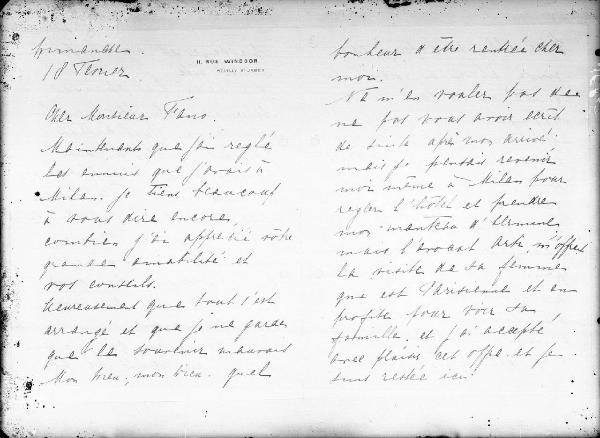 Dimanche.
18 Fevrier
11, RUE WINDSOR
NEUILLY S/ SEINE
Cher Monsieur Fano.
Maintenant que j'ai reglé
les ennuis que j'avais à
Milan. Je tiens beaucoup
à vous dire encore
combien j'ai apprécié vôtre
grande amabilité et
vos conseils.
Heureusement que tout s'est
arrangé et que je ne garde
que le souvenir mauvais
Mon Dieu, mon Dieu. quel
bonheur d'être rentrée chez
moi.
Ne m'en voulez pas de
ne pas vous avoir ecrit
de suite après mon arrivé
mais je pensais revenir
moi même à Milan pour
regler l'hôtel et prendre
mon manteau d'hermine
mais l'avocat m'offre
la visite de sa femme
que est Parisienne et en
profite pour voir sa
famille et j'ai accepté
avec plaisir cet offre et je
suis restée ici